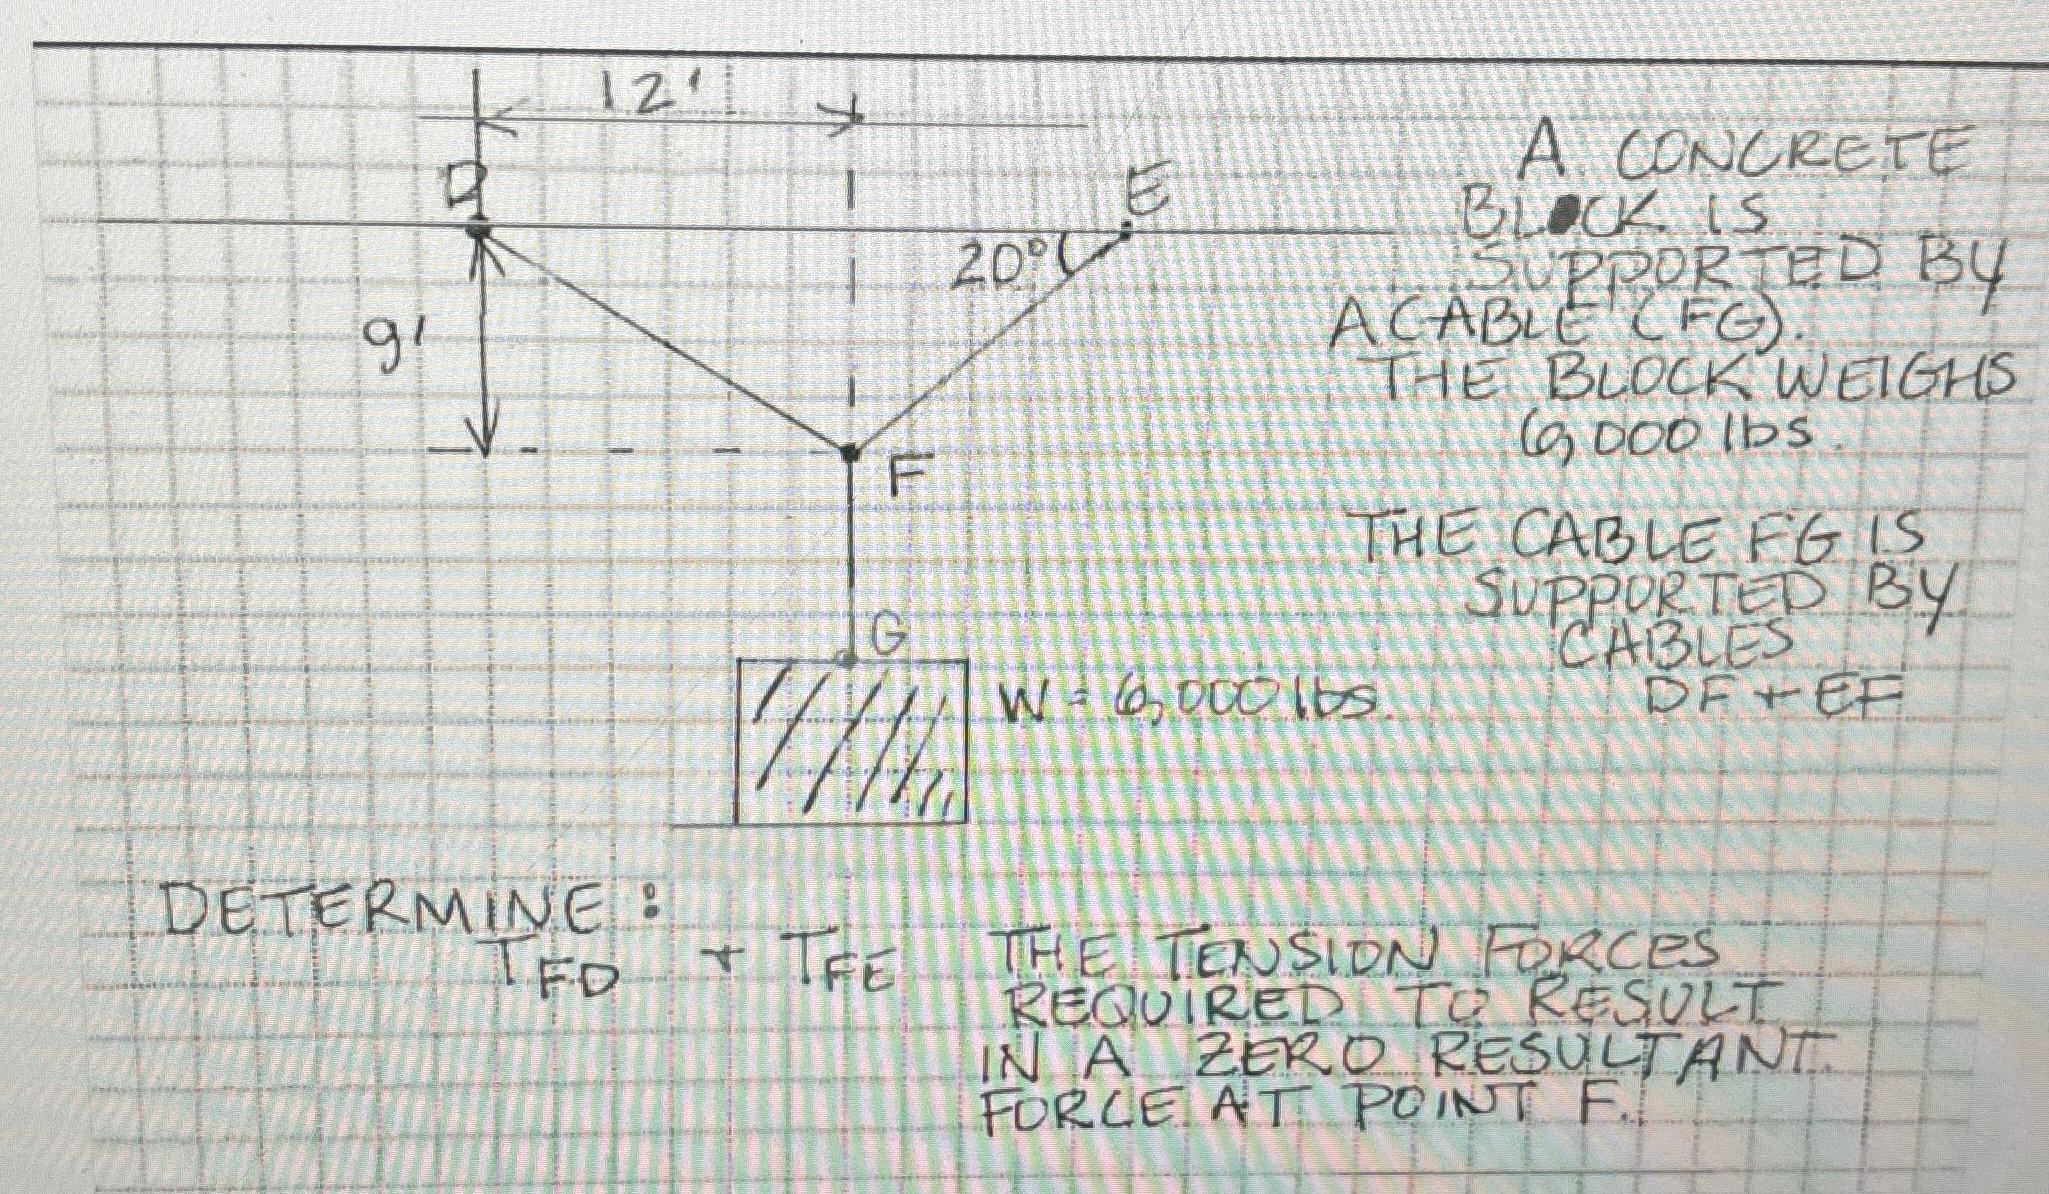 12'
D
E
20°
9'
F
G
W = 6,000 lbs.
A CONCRETE
BLOCK IS
SUPPORTED BY
A CABLE (FG).
THE BLOCK WEIGHS
6,000 lbs.
THE CABLE FG IS
SUPPORTED BY
CABLES
DF + EF
DETERMINE:
TFD + TFE
THE TENSION FORCES
REQUIRED TO RESULT
IN A ZERO RESULTANT
FORCE AT POINT F.